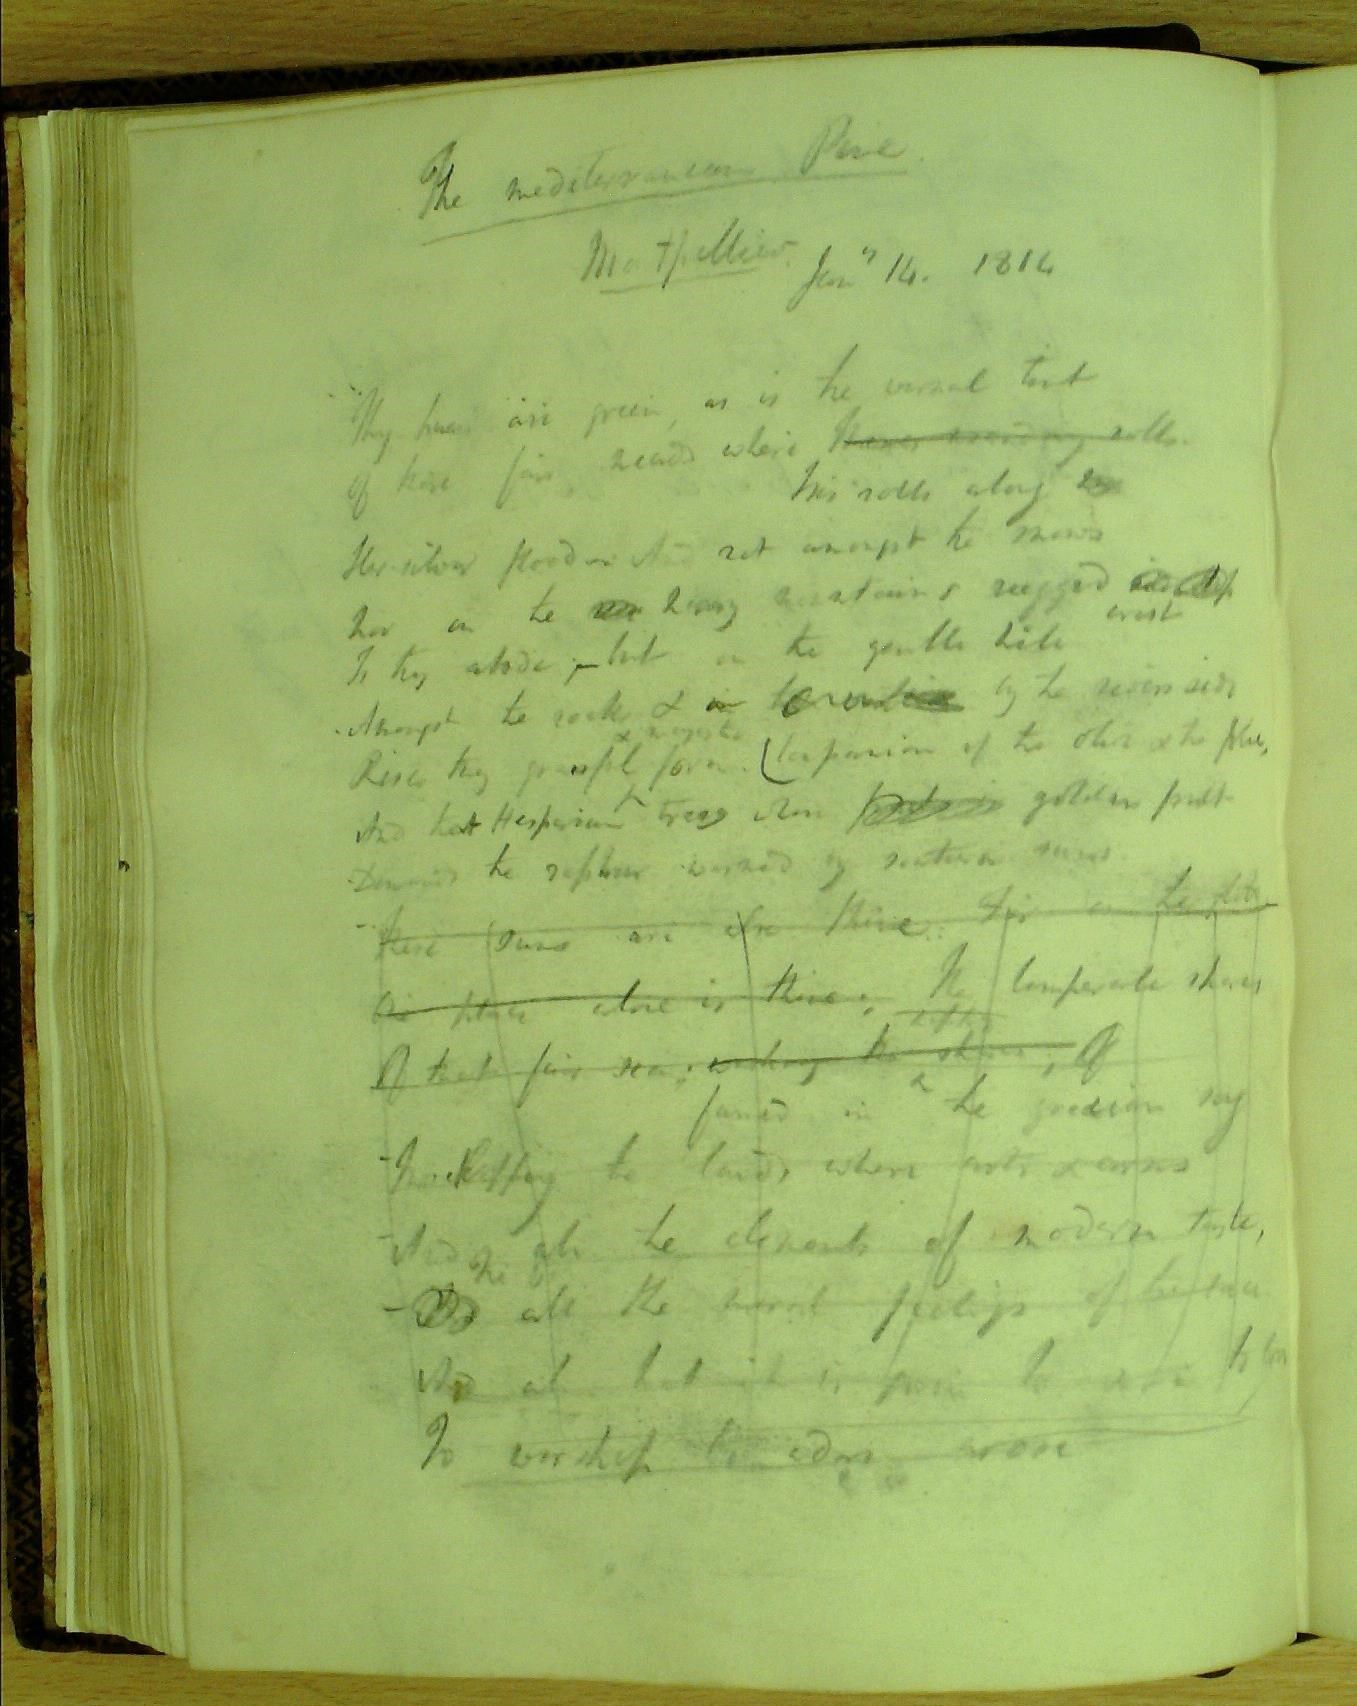 The mediterranean Pine
Montpellier. Jany 14. 1814
Thy hues are green, as is the vernal tint
Of those fair meads where rolls.
Isis rolls along
Her silver floods And not amongst the snows
Nor on the hoary mountains rugged crest
Is thy abode; - but on the gentle hill
Amongst the rocks & in by the rivers side
& majestic
Rises thy graceful form. Companion of the olive & the
And that Hesperian tree whose golden fruit
Demands the zephyr warmed by southern suns.
These suns are thine. For on the
alone is thine; The temperate shores
Of that fair sea; washing the shores; Of
famed in the grecian song
the lands where arts & arms
And all the elements of modern taste,
The
all the moral feelings of
And all that it is to
To worship to adore arose